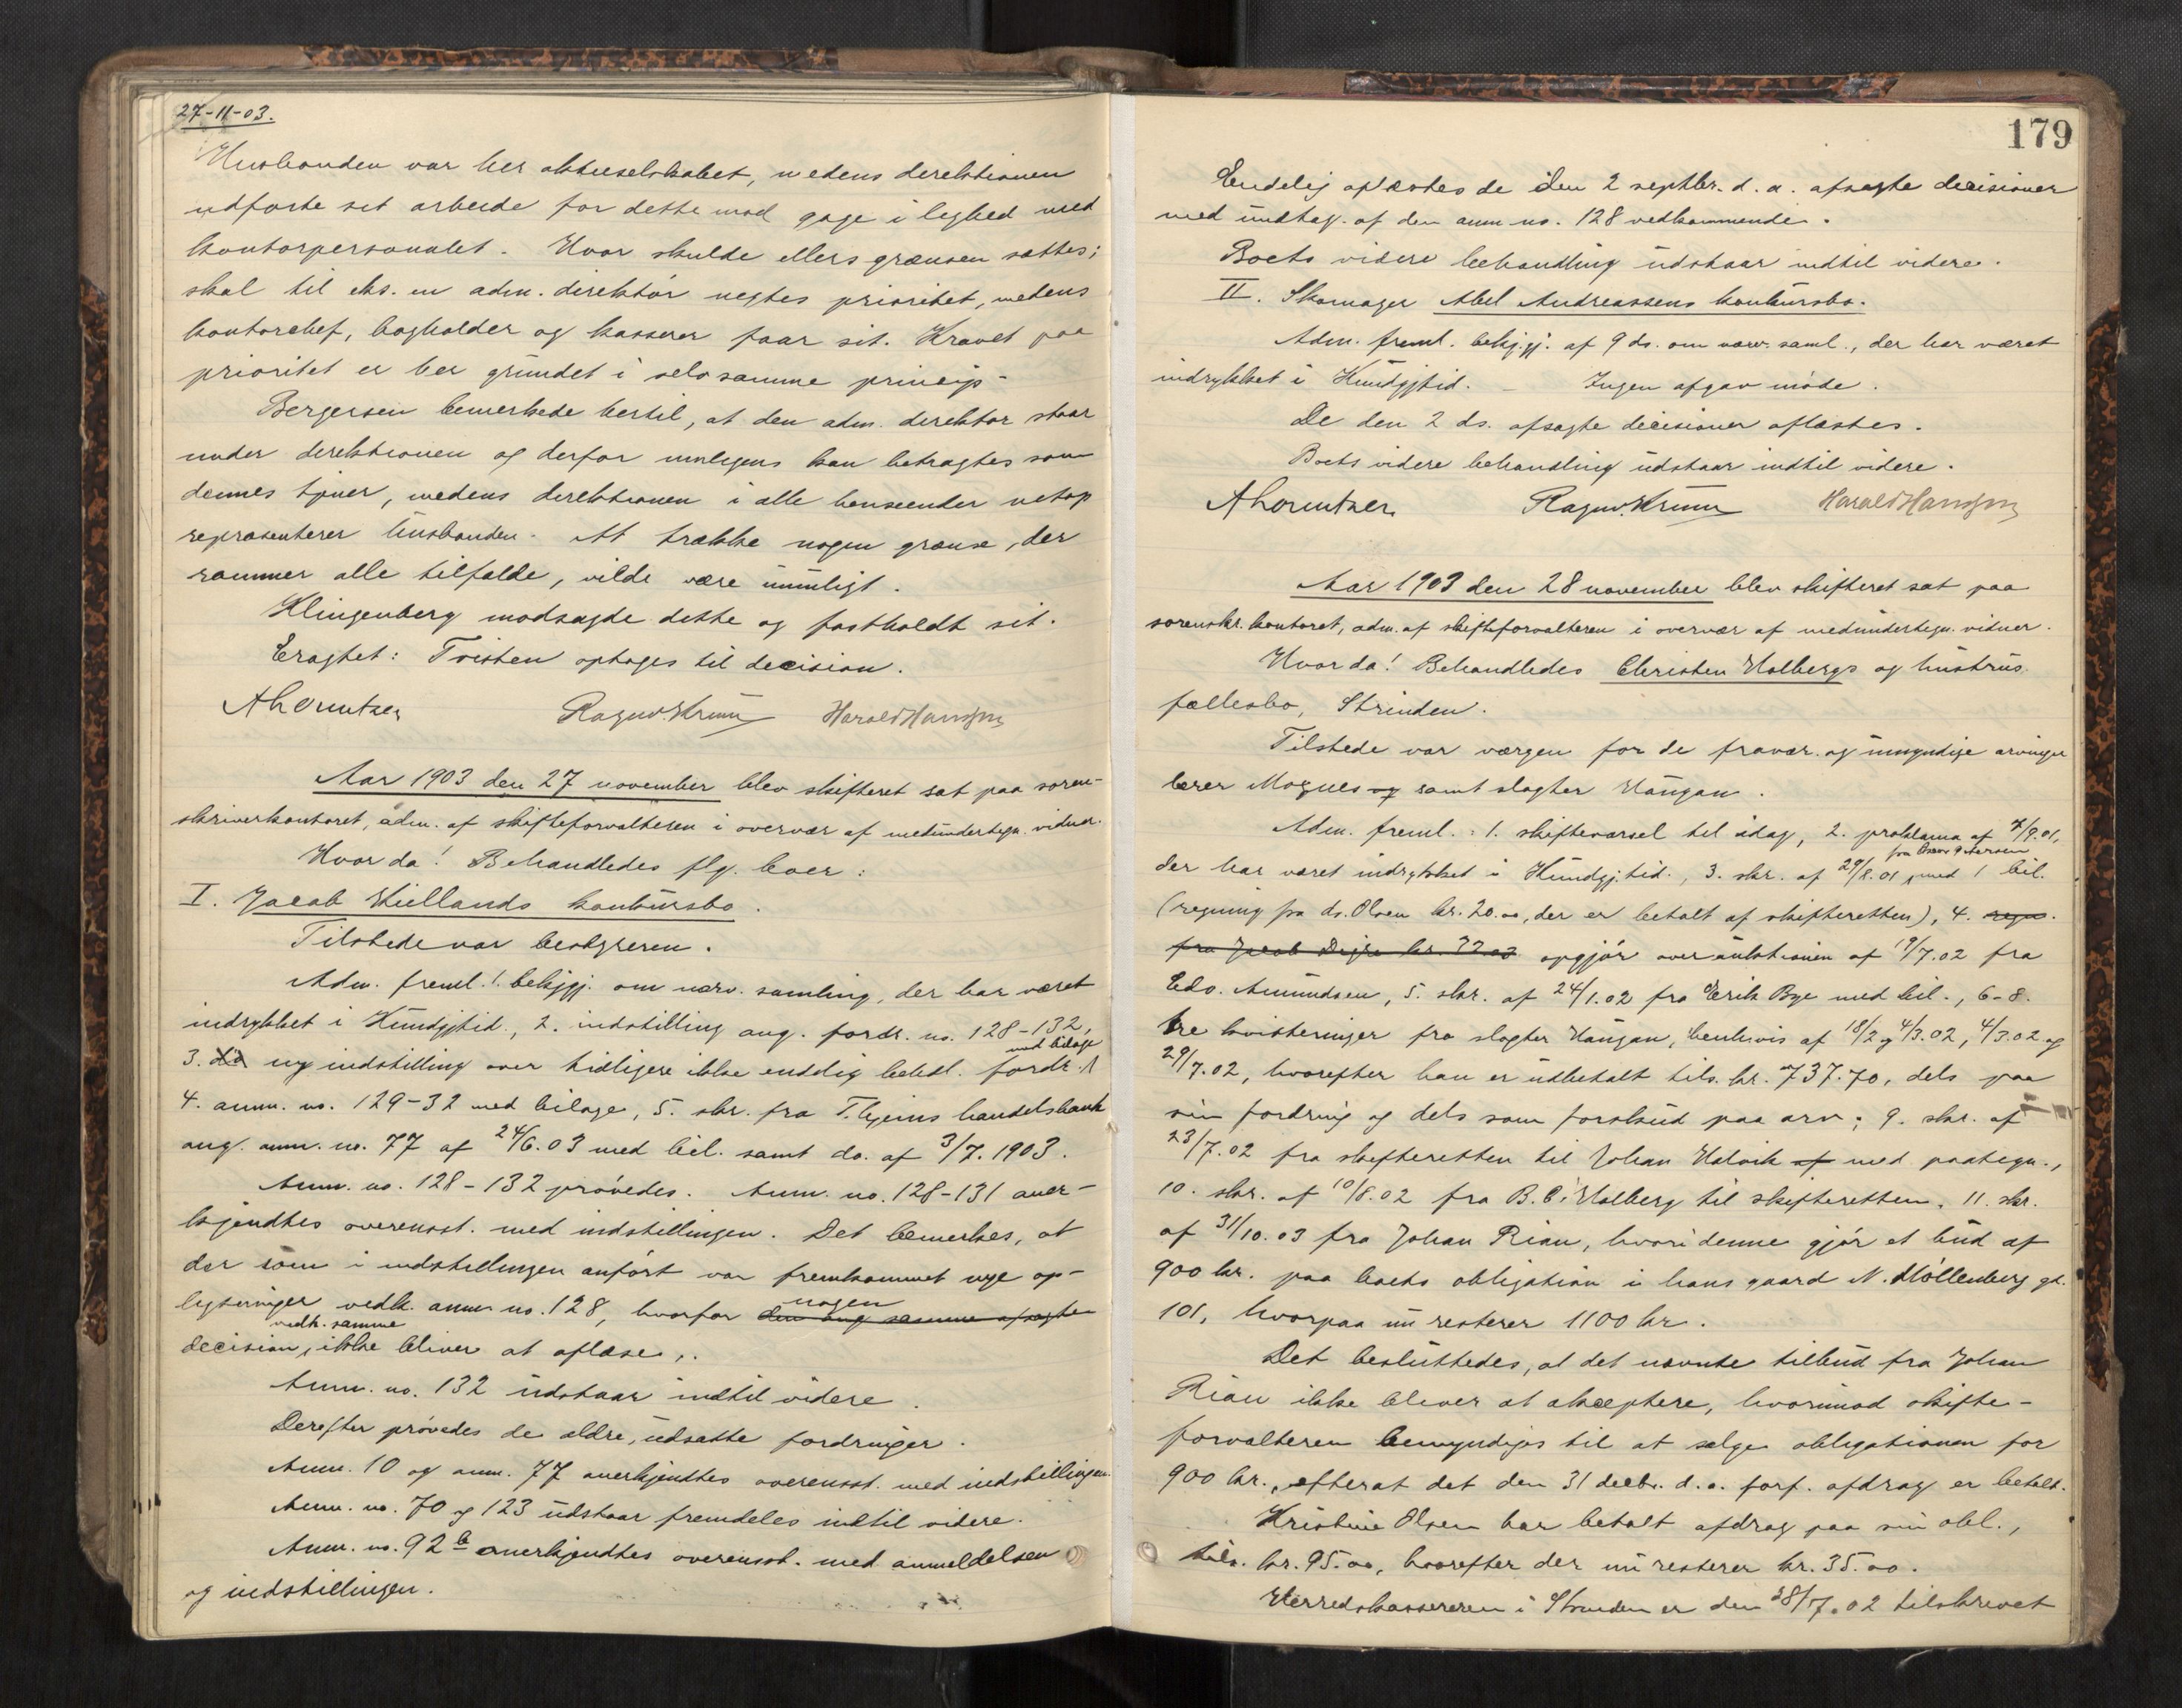 27-11-03.
Husbonden var her aktieselskabet, medens direktionen
udførte set arbeide for dette mod gage i lighed med
kontorpersonalet. Hvor skulde ellers grænsen sættes;
skal til eks. en adm. direktør negtes prioritet, medens
kontorchef, bogholder og kasserer faar sit. Kravet paa
prioritet er her grundet i selvsamme princip-
Bergersen bemerkede hertil, at den adm. direktør staar
under direktionen og derfor muligens kan betragtes som
dennes tjener, medens direktionen i alle henseender netop
repræsenterer husbonden. At trække nogen grænse, der
rammer alle tilfælde, vilde være umuligt.
Klingenberg modsagde dette og fastholdt sit.
Eragtet: Tvisten optages til decision.
A Lorentzen Ragnv. Krum Harald Hansen
Aar 1903 den 27 november blev skifteret sat paa soren-
skriverkontoret, adm. af skifteforvalteren i overvær af medundertegn. vidner.
Hvor da! Behandledes flg. boer:
I. Jacob Kiellands konkursbo.
Tilstede var bestyreren.
Adm. freml. 1. bekjgj. om nærv. samling, der har været
indrykket i Kundgjtid., 2. indstilling ang. fordr. no. 128-132,
3. do ny indstilling over tidligere ikke endelig behdl. fordr. med bilage
4. anm. no. 129-32 med bilage, 5. skr. fra T.hjems handelsbank
ang. anm. no. 77 af 24/6.03 med bil. samt do. af 3/7.1903.
Anm. no. 128-132 prøvedes. Anm. no. 128-131 aner-
kjendtes overensst. med indstillingen. Det bemerkes, at
der som i indstillingen anført var fremkommet nye op-
lysninger vedk. anm. no. 128, hvorfor den ang. samme afsagte nogen
decision, vedk. samme ikke bliver at oplæse.
Anm. no. 132 udstaar indtil videre.
Derefter prøvedes de ældre, udsatte fordringer.
Anm. 10 og anm. 77 anerkjendtes overensst. med indstillingen.
Anm. no. 70 og 123 udstaar fremdeles indtil videre.
Anm. no. 92 b anerkjendtes overensst. med anmeldelsen
og indstillingen.
179
Endelig oplæstes de den 2 septbr. d. a. afsagte decisioner
med undtag. af den anm. no. 128 vedkommende.
Boets videre behandling udstaar indtil videre.
II. Skomager Abel Andreassens konkursbo.
Adm. freml. bekjgj. af 9 ds. om nærv. saml., der har været
indrykket i Kundgjtid. – Ingen afgav møde.
De den 2 ds. afsagte decisioner oplæstes.
Boets videre behandling udstaar indtil videre.
A Lorentzen Ragnv. Krum Harald Hansen
Aar 1903 den 28 november blev skifteret sat paa
sorenskr. kontoret, adm. af skifteforvalteren i overvær af medundertegn. vidner.
Hvor da! Behandledes Christen Halbergs og hustrus
fællesbo, Strinden.
Tilstede var værgen for de fravær. og umyndige arvinger
lærer Mognes og samt slagter Haugan.
Adm. freml.: 1. skiftevarsel til idag, 2. proklama af 7/8.01,
der har været indrykket i Kundgj.tid., 3. skr. af 29/8.01 fra med 1 bil.
(regning fra ds. Olsen kr. 20.00, der er betalt af skifteretten), 4. regn.
fra Jacob Digre kr. 32.03 opgjør over auktionen af 19/7.02 fra
Edv. Amundsen, 5. skr. af 24/1.02 fra Erik Bye med bil., 6-8.
tre kvitteringer fra slagter Haugan, henhvis af 18/2 og 4/3.02, 4/3.02 og
29/7.02, hvorefter han er udbetalt tils. kr. 737.70, dels paa
sin fordring og dels som forskud paa arv; 9. skr. af
23/7.02 fra skifteretten til Johan Halvik af med paategn.,
10. skr. af 10/8.02 fra B. C. Halberg til skifteretten. 11. skr.
af 31/10.03 fra Johan Rian, hvori denne gjør et bud af
900 kr. paa boets obligation i hans gaard N. Møllenberg gt.
101, hvorpaa nu resterer 1100 kr.
Det besluttedes, at det nævnte tilbud fra Johan
Rian ikke bliver at akceptere, hvorimod skifte-
forvalteren bemyndiges til at sælge obligationen for
900 kr., efterat det den 31 decbr. d. a. forf. afdrag er betalt.
Kristine Olsen har betalt afdrag paa sin obl.,
tils. kr. 95.00, hvorefter der nu resterer kr. 35.00.
Herredskassereren i Strinden er den 28/7.02 tilskrevet